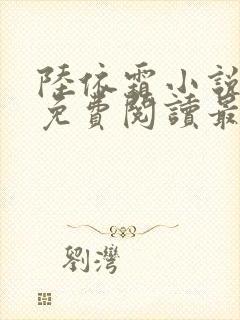 陸依霜小說
免費閱讀最
劉灣